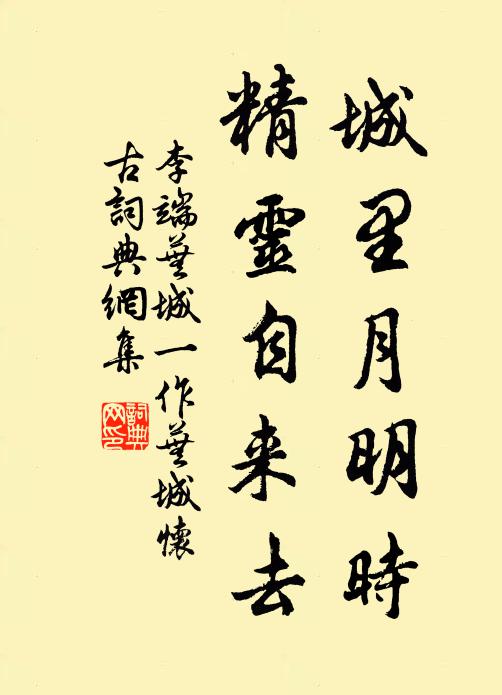 城里月明時
精靈自来去
李端蕪城一作蕪城懷
古詞典網集
詞典
网印